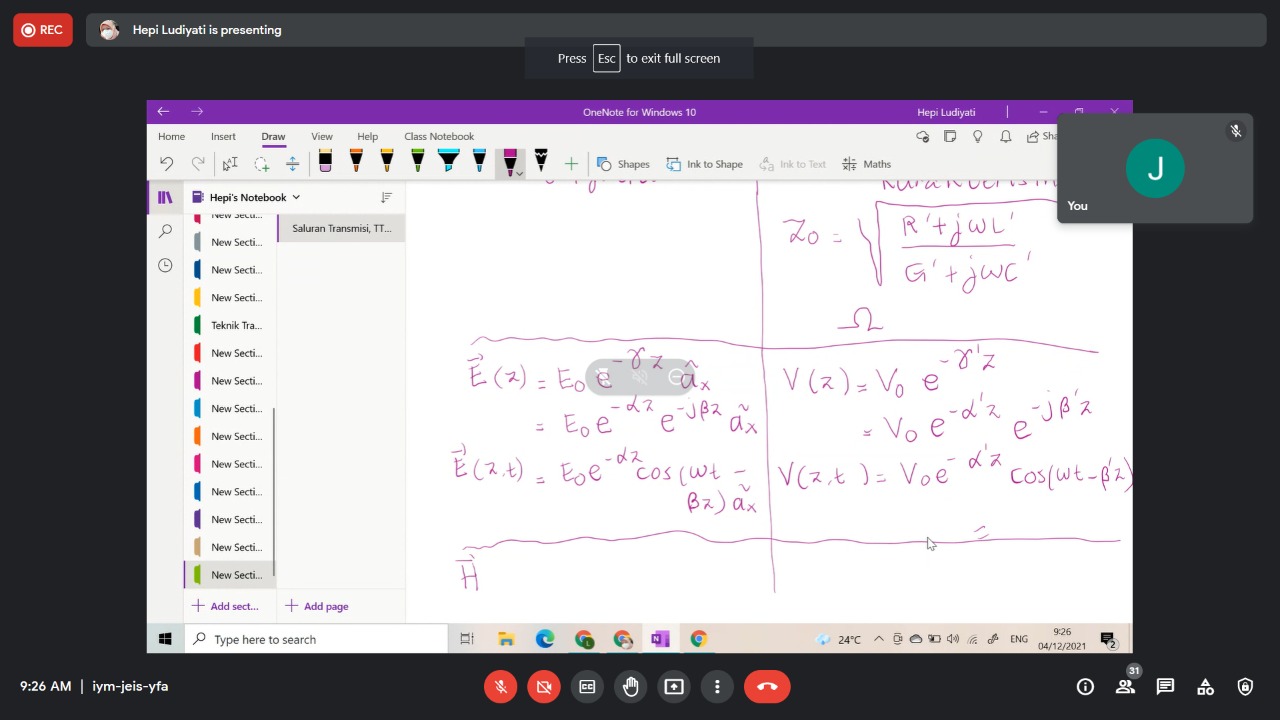 REC
Hepi Ludiyati is presenting
Press Esc to exit full screen
OneNote for Windows 10
Hepi Ludiyati
Home Insert Draw View Help Class Notebook
Sha
Shapes Ink to Shape Ink to Text Maths
Hepi's Notebook
New Secti...
Saluran Transmisi, TT...
New Secti...
New Secti...
New Secti...
Teknik Tra...
New Secti...
New Secti...
New Secti...
New Secti...
New Secti...
New Secti...
New Secti...
New Secti...
New Secti...
Add sect...
Add page
Z₀ = √((R' + jωL') / (G' + jωC'))
Ω
E⃗(z) = E₀ e^(-γz) ãₓ
= E₀ e^(-αz) e^(-jβz) ãₓ
E⃗(z,t) = E₀ e^(-αz) cos(ωt -
βz) ãₓ
H⃗
V(z) = V₀ e^(-γ'z)
= V₀ e^(-α'z) e^(-jβ'z)
V(z,t) = V₀ e^(-α'z) cos(ωt - β'z)
J
You
Type here to search
24°C
ENG
9:26
04/12/2021
2
9:26 AM | iym-jeis-yfa
31